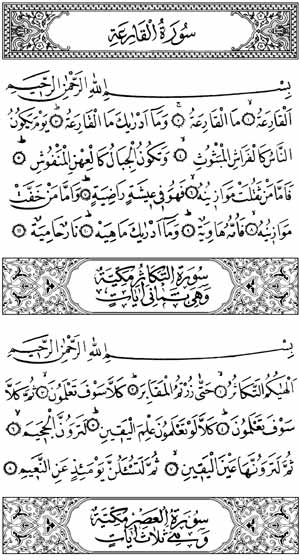 سُورَةُ الْقَارِعَةِ
بِسْمِ اللهِ الرَّحْمٰنِ الرَّحِيمِ
اَلْقَارِعَةُ ۙ ﴿١﴾ مَا الْقَارِعَةُ ۚ ﴿٢﴾ وَمَا اَدْرٰيكَ مَا الْقَارِعَةُ ۜ ﴿٣﴾ يَوْمَ يَكُونُ
النَّاسُ كَالْفَرَاشِ الْمَبْثُوثِ ۙ ﴿٤﴾ وَتَكُونُ الْجِبَالُ كَالْعِهْنِ الْمَنْفُوشِ ۜ ﴿٥﴾
فَاَمَّا مَنْ ثَقُلَتْ مَوَازِينُهُ ۙ ﴿٦﴾ فَهُوَ فِى عِيشَةٍ رَاضِيَةٍ ۜ ﴿٧﴾ وَاَمَّا مَنْ خَفَّتْ
مَوَازِينُهُ ۙ ﴿٨﴾ فَاُمُّهُ هَاوِيَةٌ ۜ ﴿٩﴾ وَمَا اَدْرٰيكَ مَاهِيَهْ ۜ ﴿١٠﴾ نَارٌ حَامِيَةٌ ﴿١١﴾
سُورَةُ التَّكَاثُرِ مَكِّيَّةٌ
وَهِىَ ثَمَانِى اٰيَاتٍ
بِسْمِ اللهِ الرَّحْمٰنِ الرَّحِيمِ
اَلْهٰيكُمُ التَّكَاثُرُ ۙ ﴿١﴾ حَتّٰى زُرْتُمُ الْمَقَابِرَ ۜ ﴿٢﴾ كَلَّا سَوْفَ تَعْلَمُونَ ۙ ﴿٣﴾ ثُمَّ كَلَّا
سَوْفَ تَعْلَمُونَ ۜ ﴿٤﴾ كَلَّا لَوْ تَعْلَمُونَ عِلْمَ الْيَقِينِ ۜ ﴿٥﴾ لَتَرَوُنَّ الْجَحِيمَ ۙ ﴿٦﴾
ثُمَّ لَتَرَوُنَّهَا عَيْنَ الْيَقِينِ ۙ ﴿٧﴾ ثُمَّ لَتُسْـَٔلُنَّ يَوْمَئِذٍ عَنِ النَّعِيمِ ﴿٨﴾
سُورَةُ الْعَصْرِ مَكِّيَّةٌ
وَهِىَ ثَلَاثُ اٰيَاتٍ